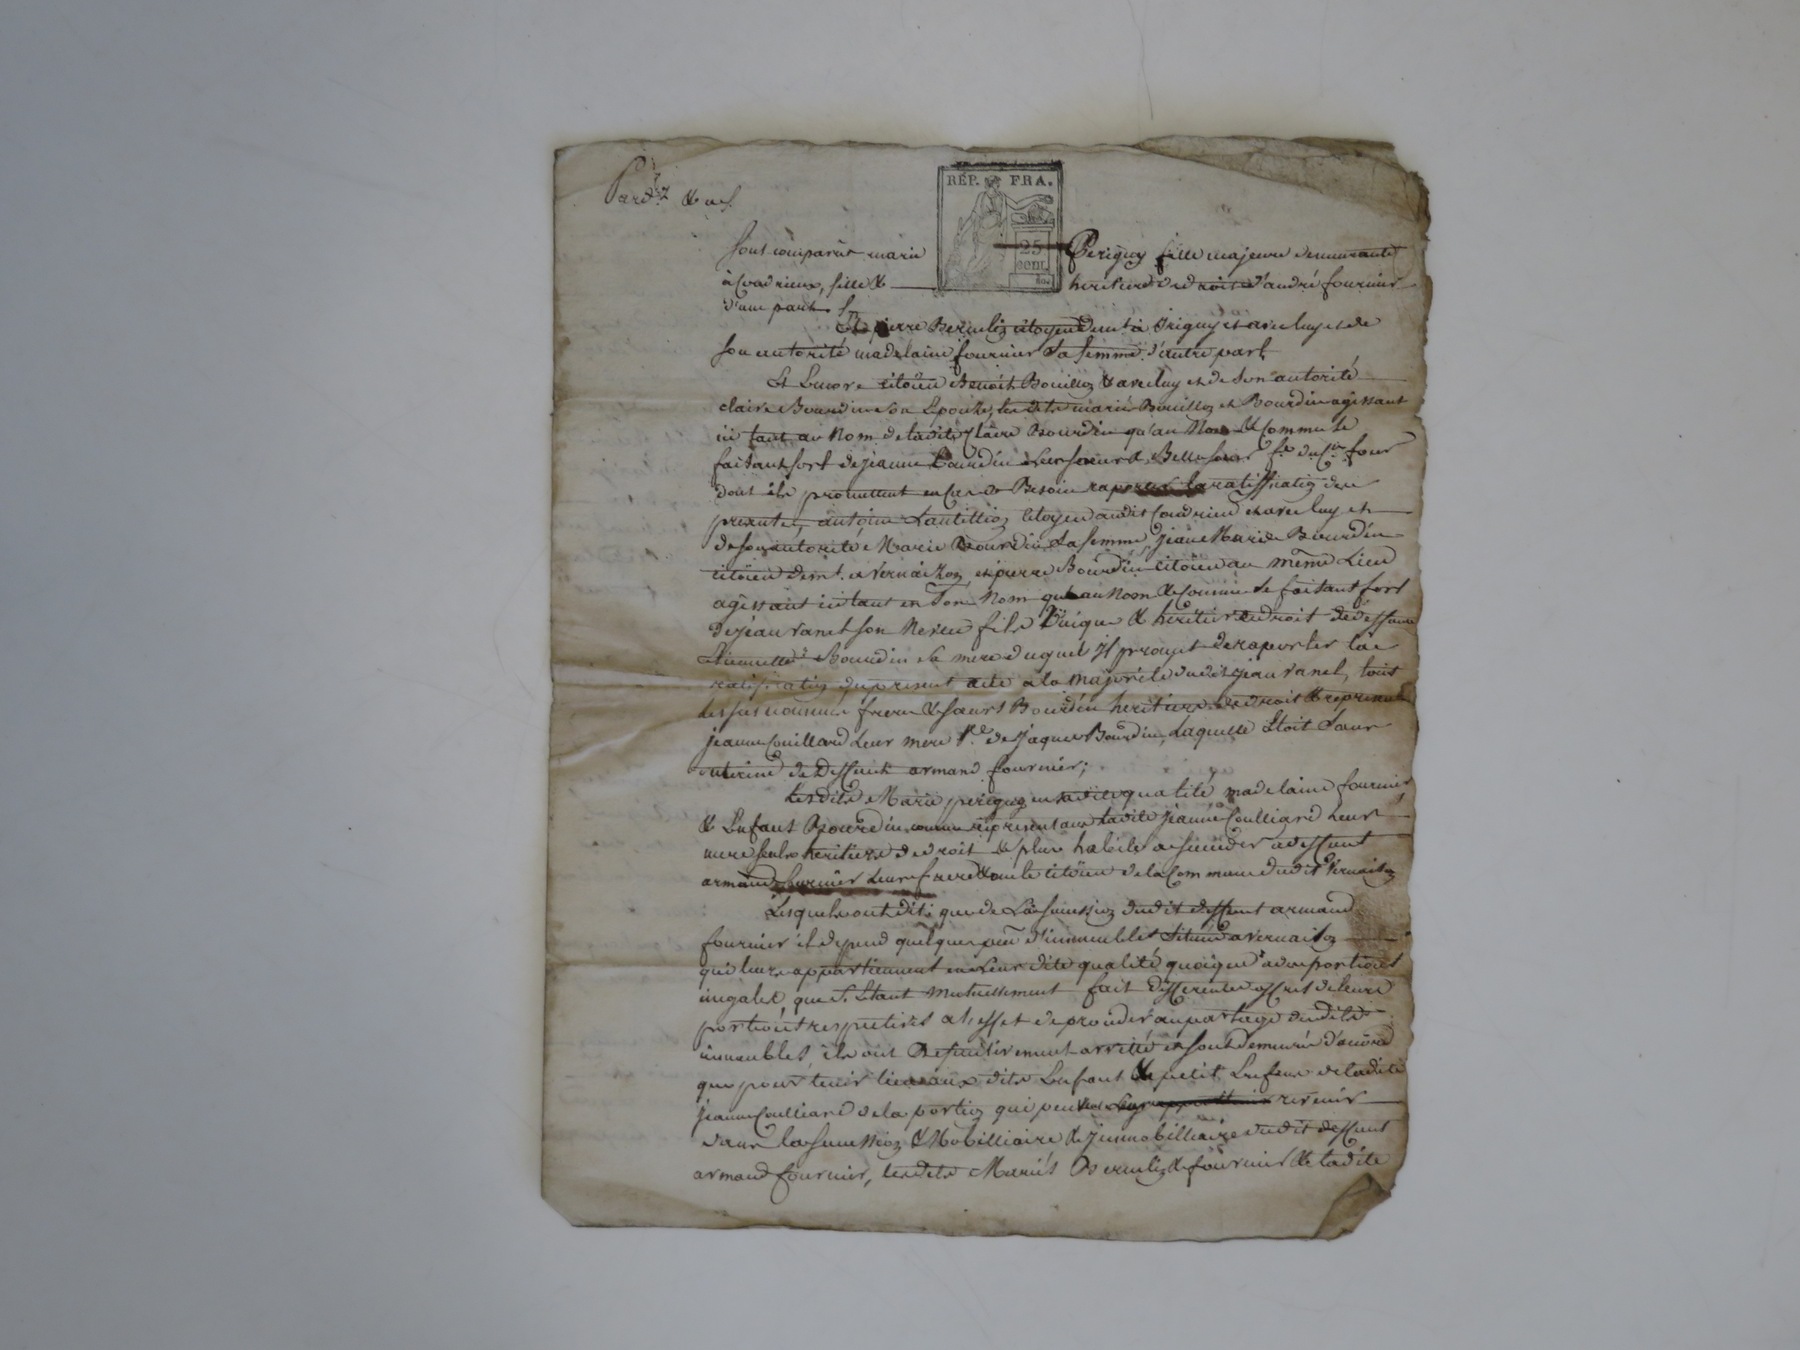 Pard.t &c
RÉP. FRA.
25
cent.
Sont comparus marie Perigny fille majeure demeurante
à Condrieux, fille & heritiere de droit d'andré fournier
d'une part
Et pierre citoyen demt à Irigny et avec luy et de
son autorité madelaine fournier sa femme d'autre part
Et Encore citoïen Benoit Bouillon & avec luy et de son autorité
claire Bourdin son Epouse, lesdits mariés Bouillon et Bourdin agissant
ici tant au Nom de ladite Claire Bourdin qu'au Nom & Comme se
faisant fort de jeanne Bourdin Leur soeur & Belle soeur
dont ils promettent en Cas de Besoin raporter la ratiffication du
present, antoine citoyen audit Condrieu et avec luy et
de son autorité Marie Bourdin sa femme, jean Marie Bourdin
citoïen demt. a Vernaizon, et pierre Bourdin citoïen au même Lieu
agissant ici tant en son Nom qu'au Nom & Comme se faisant fort
de jean ranet son Neveu fils Unique & heritier de droit de deffunte
Etiennette Bourdin sa mere duquel Il promet de raporter la
ratification du present acte a la majorité dudit jean ranet, tous
les susnommés freres & soeurs Bourdin heritiers de droit & representant
jeanne Couillard Leur mere Ve. de jaques Bourdin, Laquelle Etoit soeur
uterine de Deffunt armand fournier;
Lesdits Marie perigny en sadite qualité madelaine fournier
& Enfants Bourdin comme representant ladite jeanne Coulliard Leur
mere seuls heritiers de droit & plus habiles a succeder a deffunt
armand fournier Leur frere & oncle citoïen de la Commune dudit Vernaison
Lesquels ont dit que de La succession dudit deffunt armand
fournier il depend quelque peu d'immeubles situés a Vernaison
qui leurs appartiennent en Leur dite qualité quoique a des portions
inegales que s'Etant Mutuellement fait differentes offres de leurs
portions respectives a l'effet de proceder au partage desdits
immeubles, ils ont Definitivement arrêté et sont demeurés d'accord
que pour tenir lieu aux dits Enfant & petit Enfant de ladite
jeanne Coulliard de la portion qui peut leur revenir
dans la succession & Mobilliaire & jmmobilliaire dudit deffunt
armand fournier, lesdits Mariés & fournier & ladite